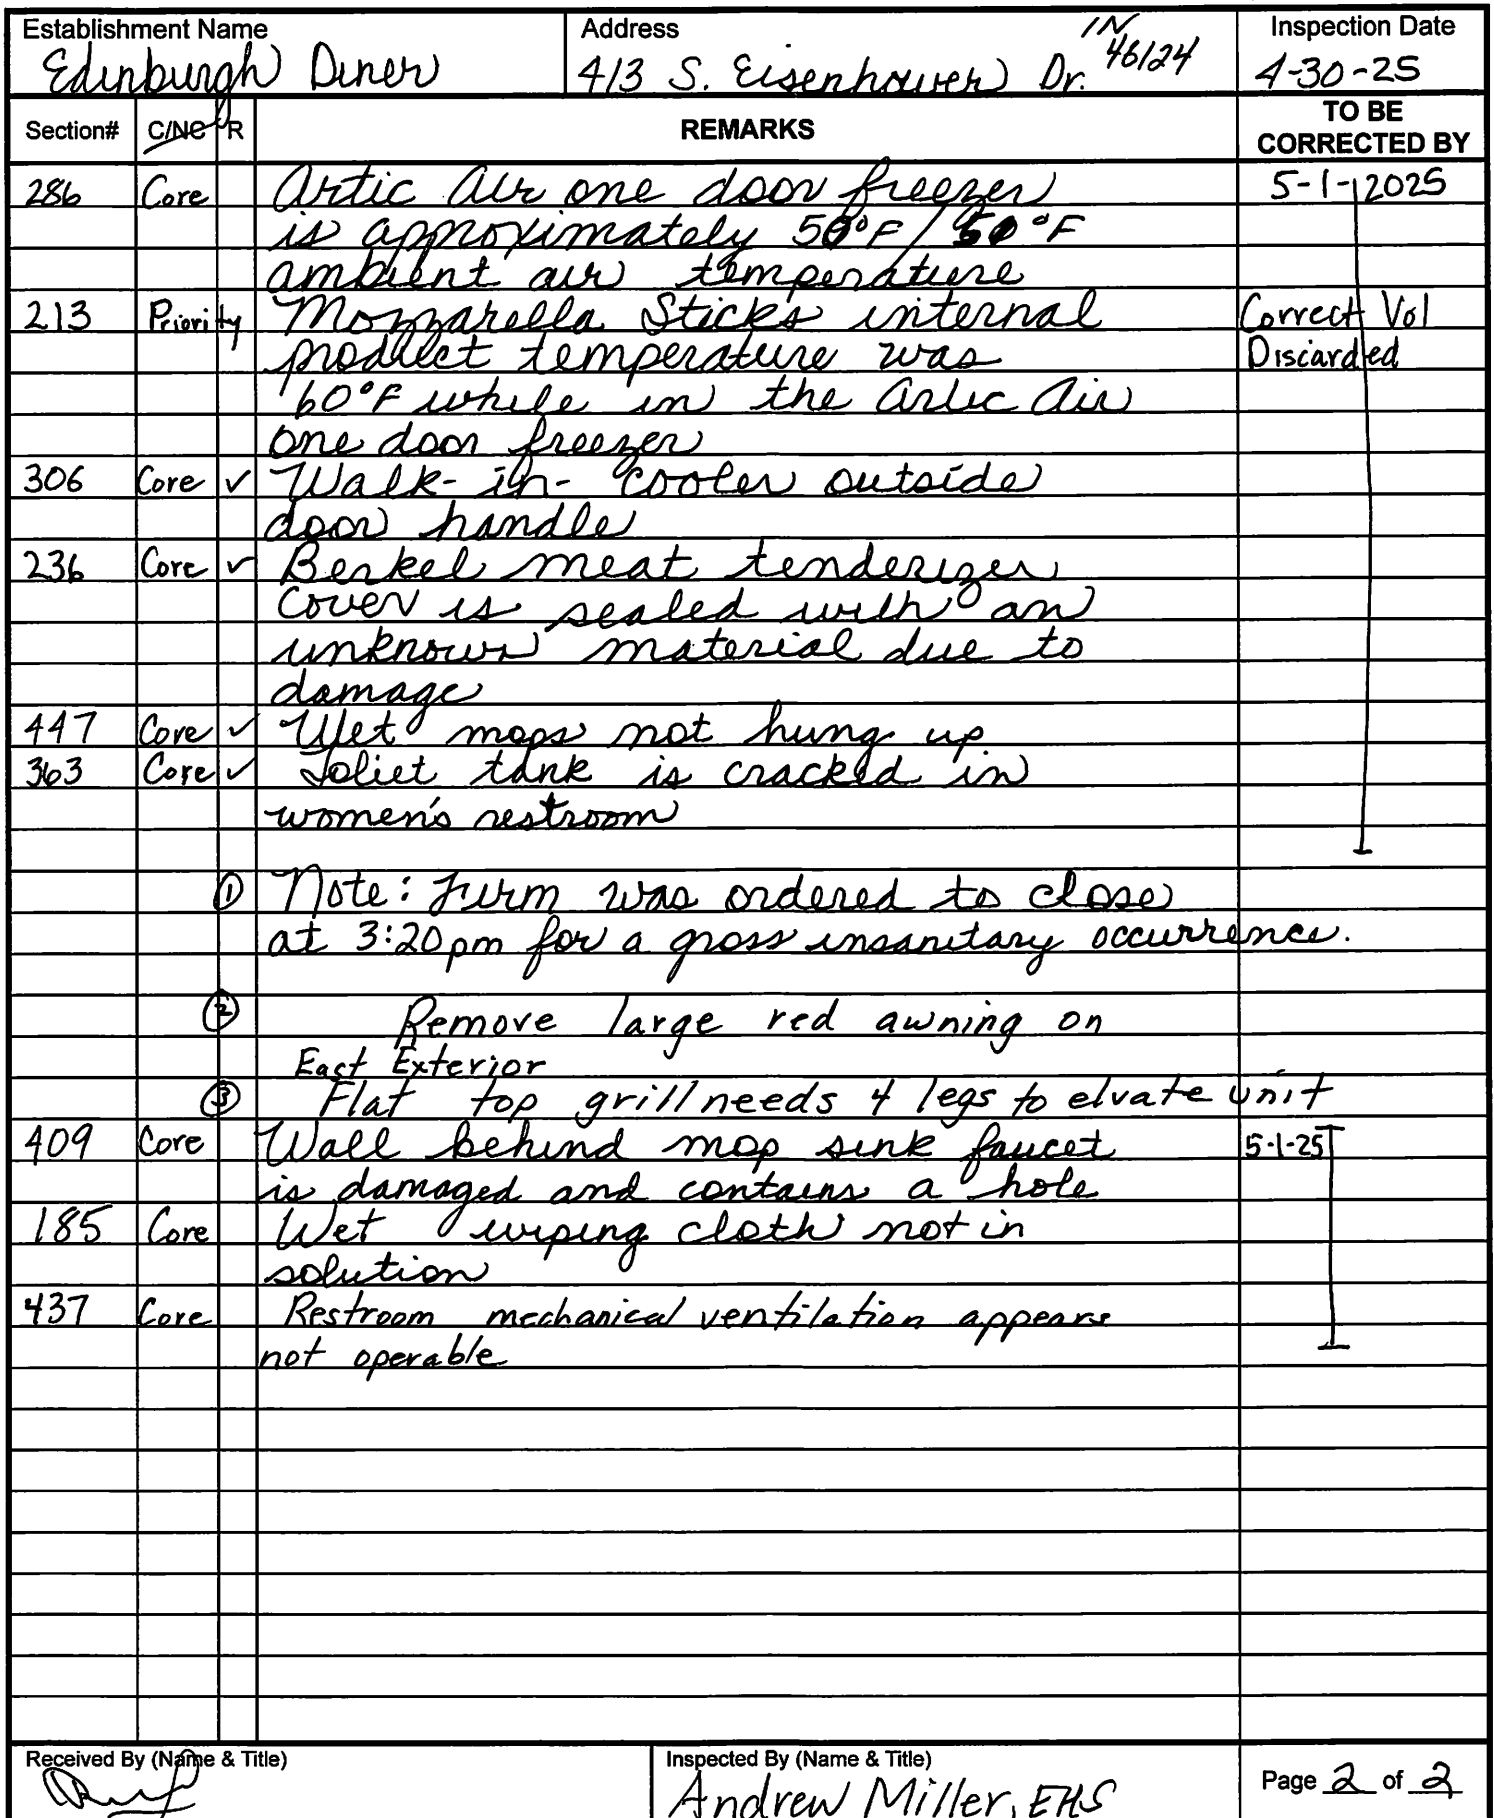 Establishment Name Address Inspection Date
Edinburgh Diner 413 S. Eisenhower Dr. IN 46124 4-30-25
Section# C/NC R REMARKS TO BE CORRECTED BY
286 Core Artic Air one door freezer 5-1-2025
is approximately 50°F / 50°F
ambient air temperature
213 Priority Mozzarella Sticks internal Correct Vol
product temperature was Discarded
60°F while in the Artic Air
one door freezer
306 Core ✓ Walk-in-cooler outside
door handle
236 Core ✓ Berkel meat tenderizer
cover is sealed with an
unknown material due to
damage
447 Core ✓ Wet mops not hung up
363 Core ✓ Toliet tank is cracked in
women's restroom
① Note: Firm was ordered to close
at 3:20pm for a gross insanitary occurrence.
② Remove large red awning on
East Exterior
③ Flat top grill needs 4 legs to elvate unit
409 Core Wall behind mop sink faucet 5-1-25
is damaged and contains a hole
185 Core Wet wiping cloth not in
solution
437 Core Restroom mechanical ventilation appears
not operable
Received By (Name & Title) Inspected By (Name & Title) Page 2 of 2
Andrew Miller, EHS